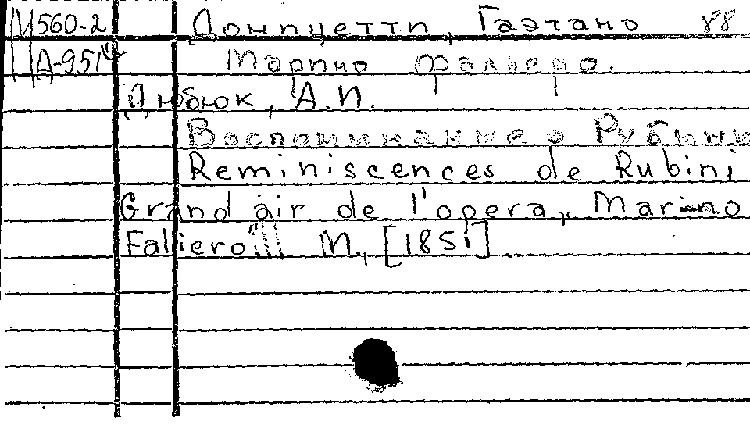 М560-2 Доницетти, Гаэтано 88
А-951 Марино Фальеро.
Дюбюк, А.И.
Воспоминание о Рубини
Reminiscences de Rubini
Grand air de l'opera „Marino
Faliero" М., [1851]